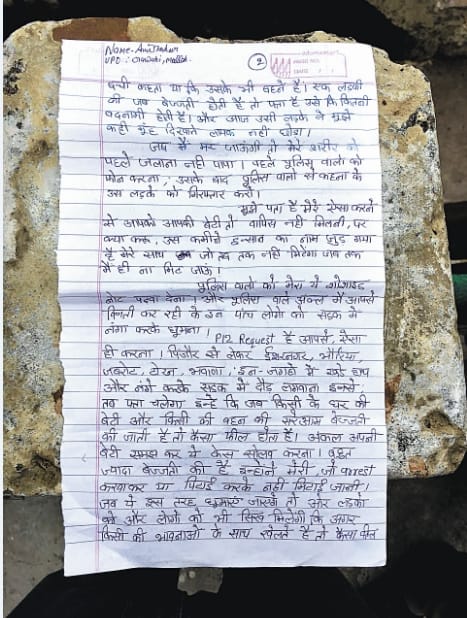 Name-
②
यही कहता था कि उसके भी बहने हैं। एक लड़की
की जब बेज्जती होती है तो पता है उसे कि कितनी
बदनामी होती है। और आज उसी लड़के ने मुझे
कही मुँह दिखाने लायक नही छोड़ा।
जब मैं मर जाऊंगी तो मेरे शरीर को
पहले जलाना नही पापा। पहले पुलिस वालो को
फोन करना, उसके बाद पुलिस वालो से कहना के
उस लड़के को गिरफ्तार करो।
मुझे पता है मेरे ऐसा करने
से आपको आपकी बेटी तो वापिस नही मिलेगी, पर
क्या करू, उस कमीने इन्सान का नाम जुड़ गया
है मेरे साथ जो तब तक नही मिटेगा जब तक
मैं ही ना मिट जाऊं।
पुलिस वालो को मेरा ये सोसाइड
नोट पढवा देना। और पुलिस वाले अंकल मैं आपसे
विनती कर रही के इन पांच लोगो को सड़क में
नंगा करके घुमाना।
Plz Request है आपसे, ऐसा
ही करना। पिंजौर से लेकर ईशरनगर,
इन जगहो में
और नंगे करके सड़क में दौड़ लगवाना इनसे,
तब पता चलेगा इन्हे कि जब किसी के घर की
बेटी और किसी की बहन की सरेआम बेज्जती
की जाती है तो कैसा फील होता है। अंकल अपनी
बेटी समझ कर ये केस सोल्व करना। बहुत
ज्यादा बेज्जती की है इन्होने मेरी, जो arrest
करवाकर या पिटाई करके नही मिटाई जानी।
जब ये इस तरह घुमाए जाएंगे तो और लड़को
को और लोगो को भी सिख मिलेगी कि अगर
किसी की भावनाओं के साथ खेलते हैं तो कैसा